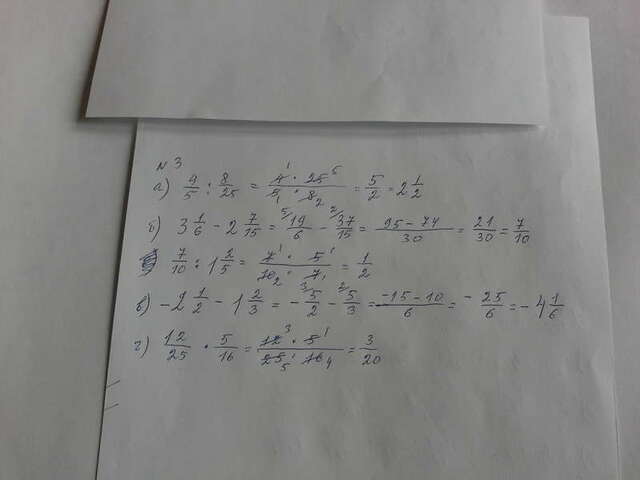 №3
а) 4/5 : 8/25 = 4¹ · 25⁵ / 5₁ · 8₂ = 5/2 = 2 1/2
б) 3 1/6 - 2 7/15 = ⁵/19/6 - ²/37/15 = 95 - 74 / 30 = 21/30 = 7/10
7/10 : 1 2/5 = 7¹ · 5¹ / 10₂ · 7₁ = 1/2
в) -2 1/2 - 1 2/3 = - ³/5/2 - ²/5/3 = -15-10 / 6 = - 25/6 = - 4 1/6
г) 12/25 · 5/16 = 12³ · 5¹ / 25₅ · 16₄ = 3/20